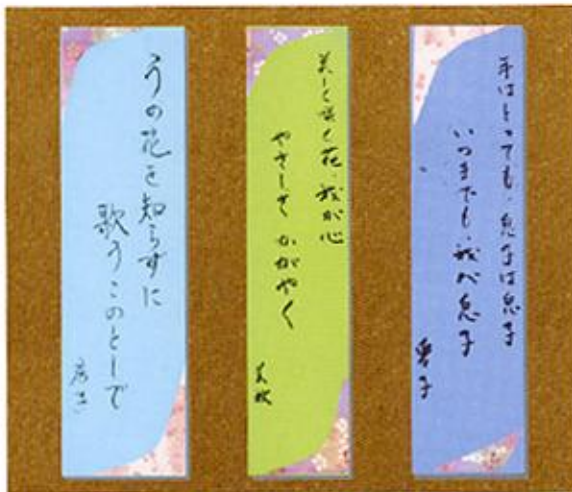 年はとっても、息子は息子
いつまでも、我が息子
愛子
美しく咲く花、我が心
やさしさ かがやく
うの花を知らずに
歌うこのとしで